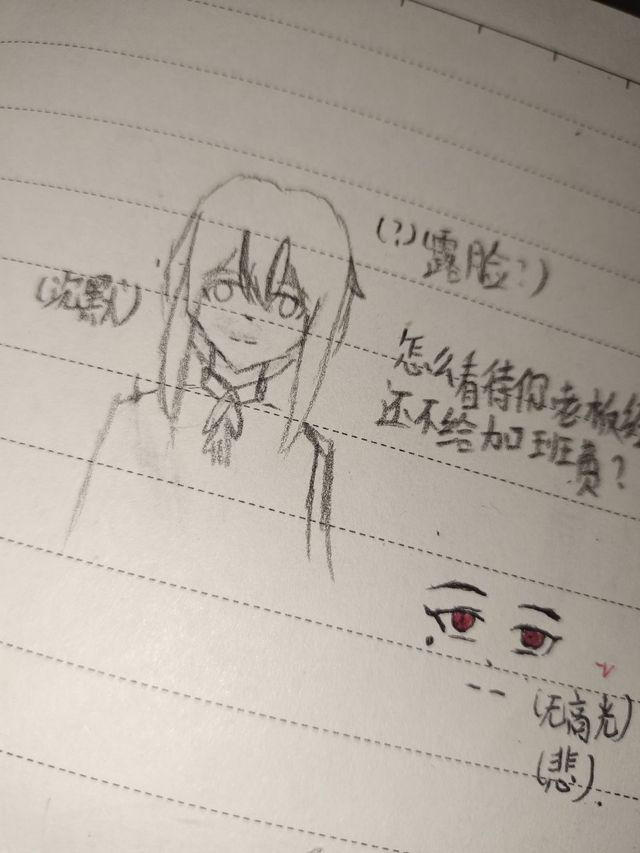 (?)(露脸?)
(沉默)
怎么看待你老板经
还不给加班费?
(无高光)
(悲).